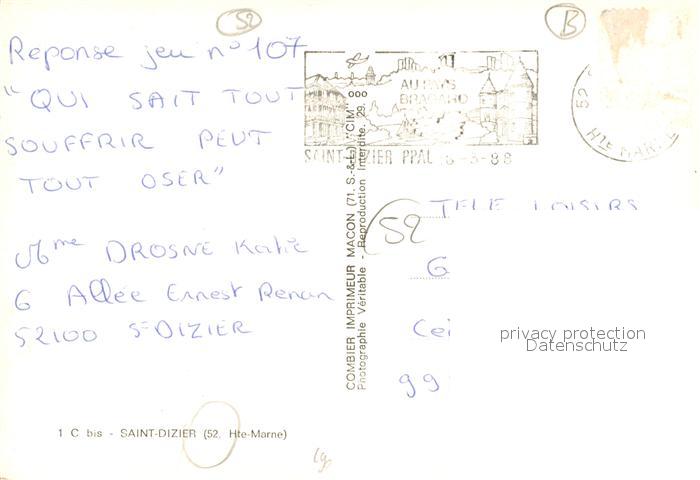 52
B
Reponse jeu n° 107
"QUI SAIT TOUT
SOUFFRIR PEUT
TOUT OSER"
Mme DROSNE Katie
6 Allée Ernest Renan
52100 St DIZIER
1 C bis - SAINT-DIZIER (52, Hte-Marne)
COMBIER IMPRIMEUR MACON (71, S.-&-L.) "CIM"
Photographie Véritable - Reproduction Interdite. 29.
AU PAYS
BRAGARD
SAINT-DIZIER PPAL 18-3-88
52
HTE MARNE
52
TELE LOISIRS
6
Cei
99
privacy protection
Datenschutz